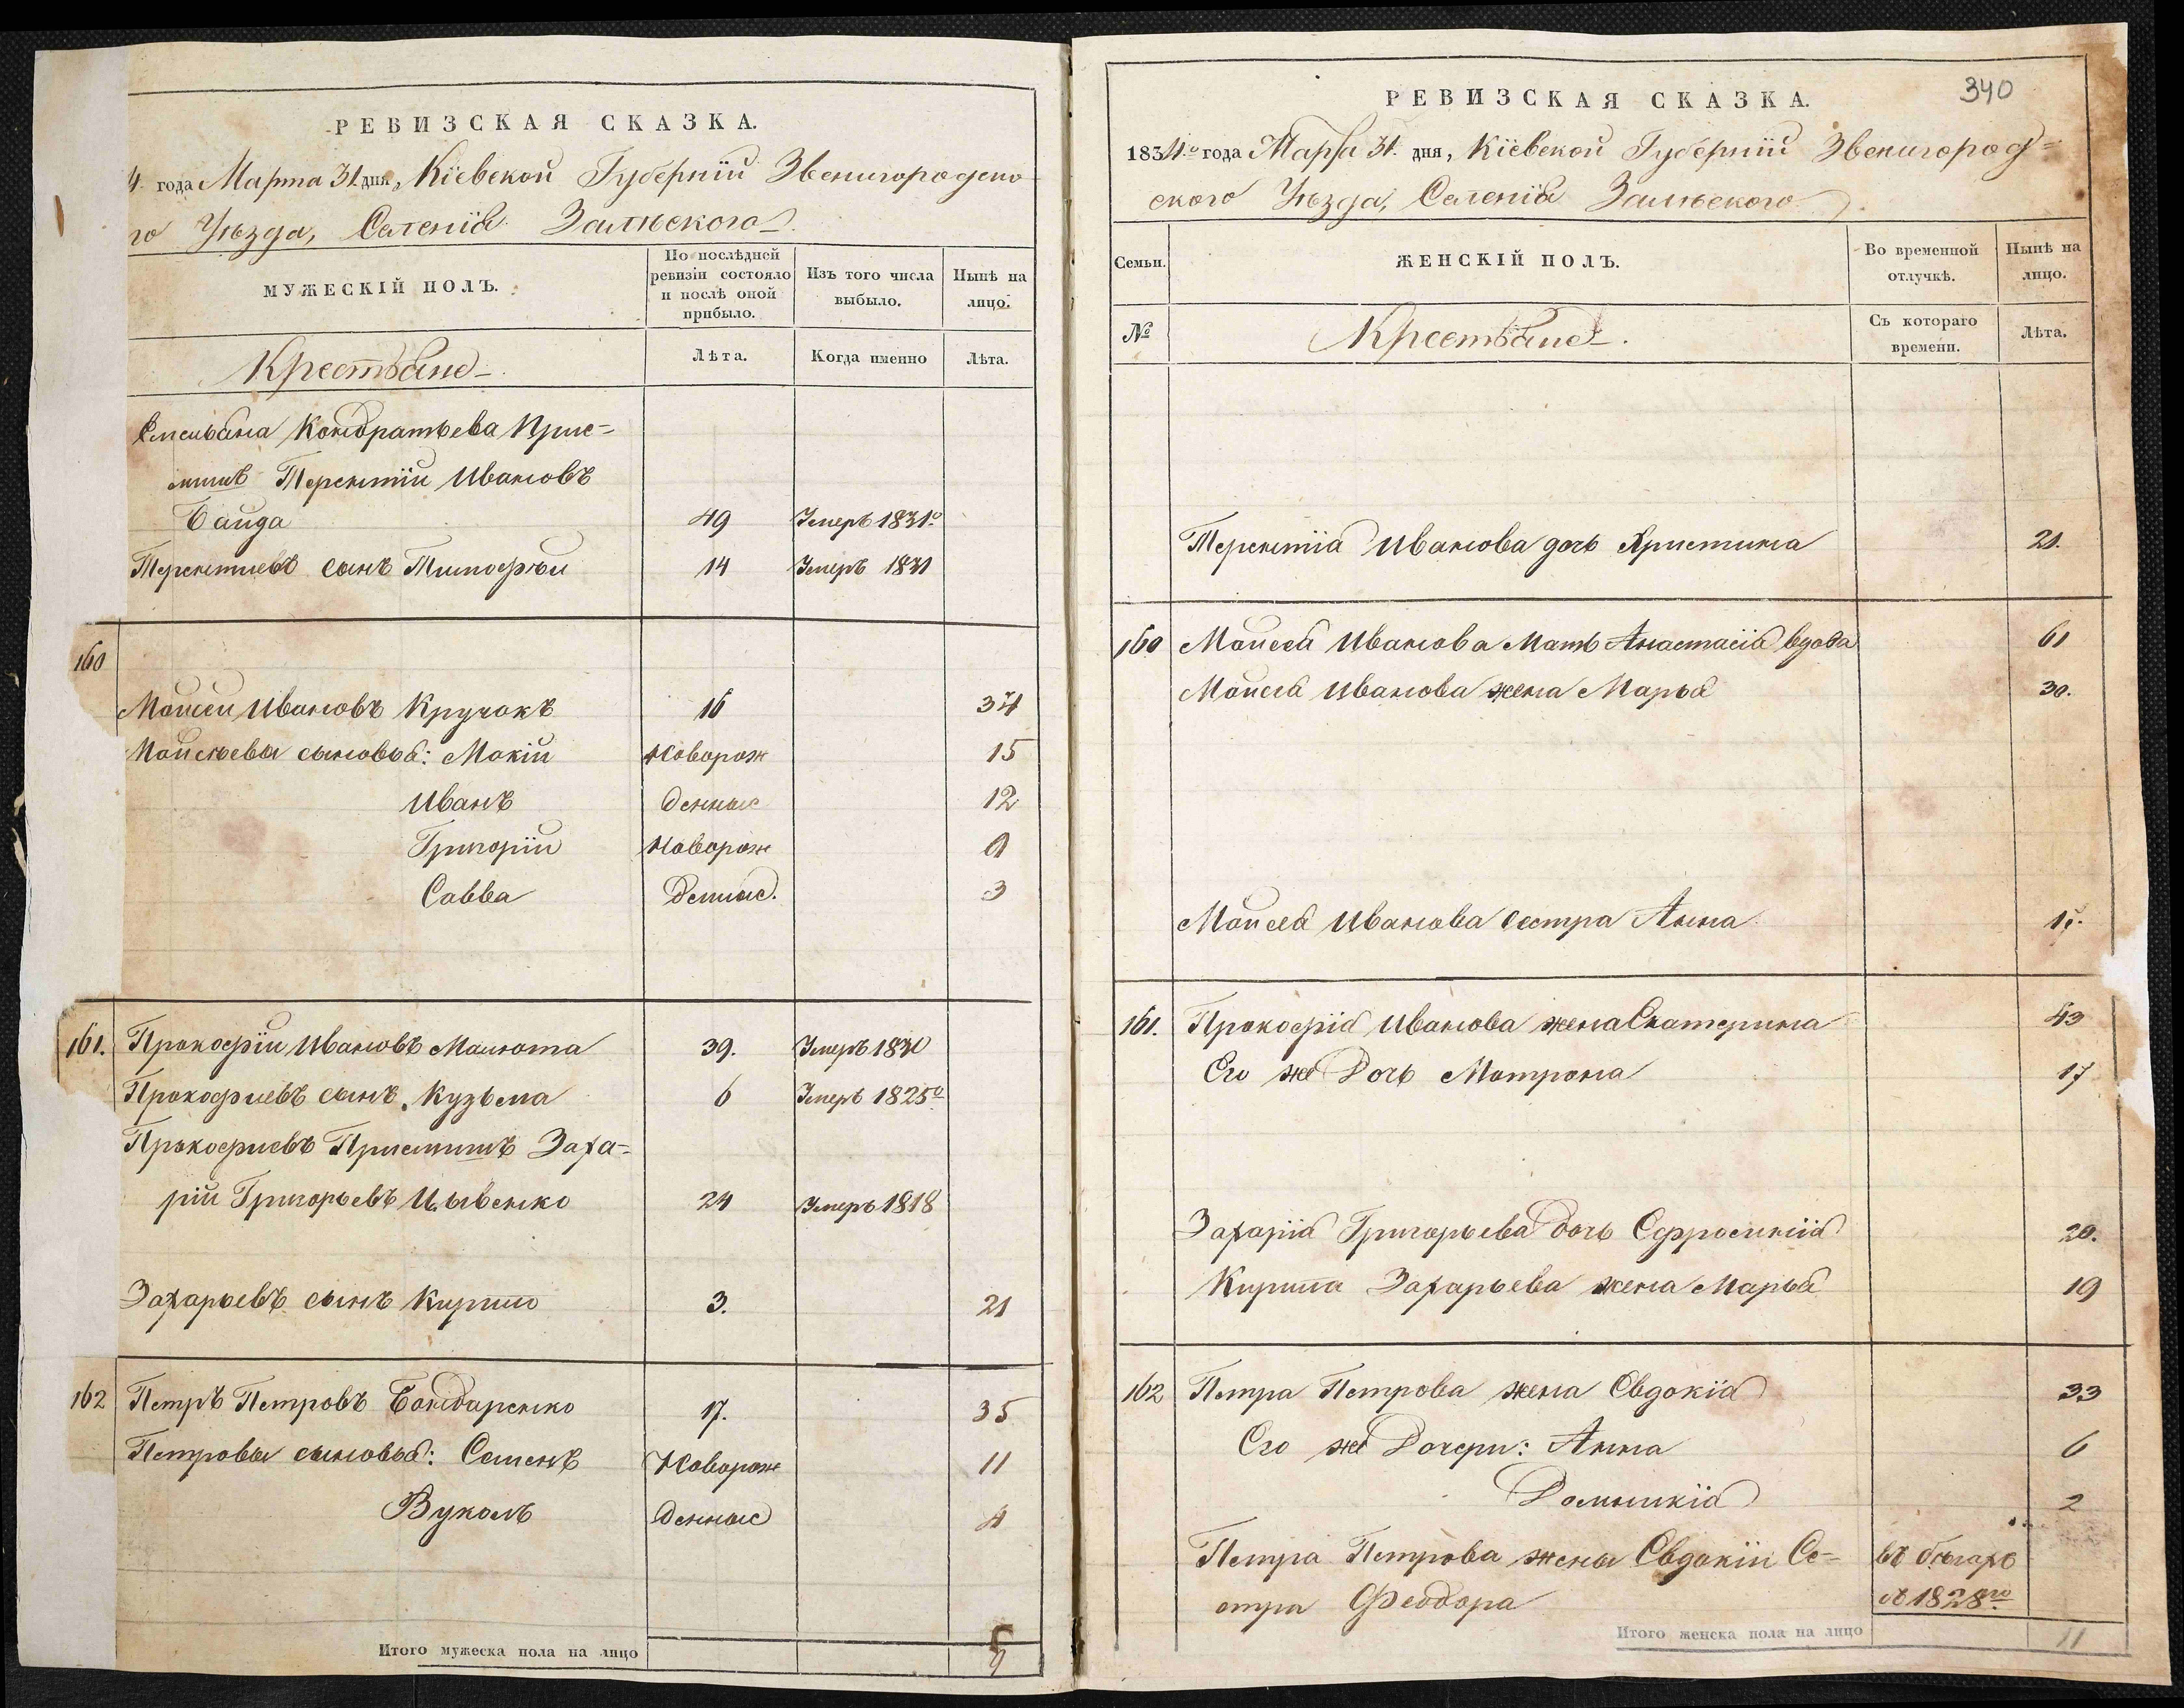 РЕВИЗСКАЯ СКАЗКА.
4. года Марта 31. дня, Кіевской Губерніи Звенигородско
го Уѣзда, Селенія Залѣского
МУЖЕСКІЙ ПОЛЪ.
По послѣдней ревизіи состояло и послѣ оной прибыло.
Изъ того числа выбыло.
Нынѣ на лицо.
Крестьяне
Лѣта.
Когда именно
Лѣта.
Емельяна Кондратьева Прие=
мышъ Терентій Ивановъ
Байда 49 Умеръ 1831.º
Терентиевъ сынъ Тимофѣй 14 Умеръ 1831
160
Мойсей Ивановъ Кручокъ 16 34
Мойсѣевы сыновья: Мокій Новорож 15
Иванъ денные 12
Григорій Новорож 9
Савва денные. 3
161. Прокофій Ивановъ Малюта 39. Умеръ 1830
Прокофиевъ сынъ Кузьма 6 Умеръ 1825º
Прокофиевъ Приемышъ Заха=
рій Григорьевъ Цывенко 24 Умеръ 1818
Захарьевъ сынъ Кирило 3. 21
162 Петръ Петровъ Бондаренко 17. 35
Петровы сыновья: Семенъ Новорож 11
Вуколъ денные 4
Итого мужеска пола на лицо 9
340
РЕВИЗСКАЯ СКАЗКА.
1834.º года Марта 31. дня, Кіевской Губерніи Звенигород=
ского Уѣзда, Селенія Залѣского
Семьи.
ЖЕНСКІЙ ПОЛЪ.
Во временной отлучкѣ.
Нынѣ на лицо.
№
Крестьяне.
Съ котораго времени.
Лѣта.
Терентія Иванова дочь Христина 21.
160 Мойсея Иванова Мать Анастасія вдова 61
Мойсея Иванова жена Марья 30.
Мойсея Иванова сестра Анна
161. Прокофія Иванова жена Екатерина 43
Его же Дочь Матрона 17
Захарія Григорьева дочь Ефросинія 20.
Кирила Захарьева жена Марья 19
162 Петра Петрова жена Евдокія 33
Его же Дочери: Анна 6
Домникія 2
Петра Петрова жены Евдокіи Се= въ бѣгахъ
стра Феодора съ 1828го
Итого женска пола на лицо 11